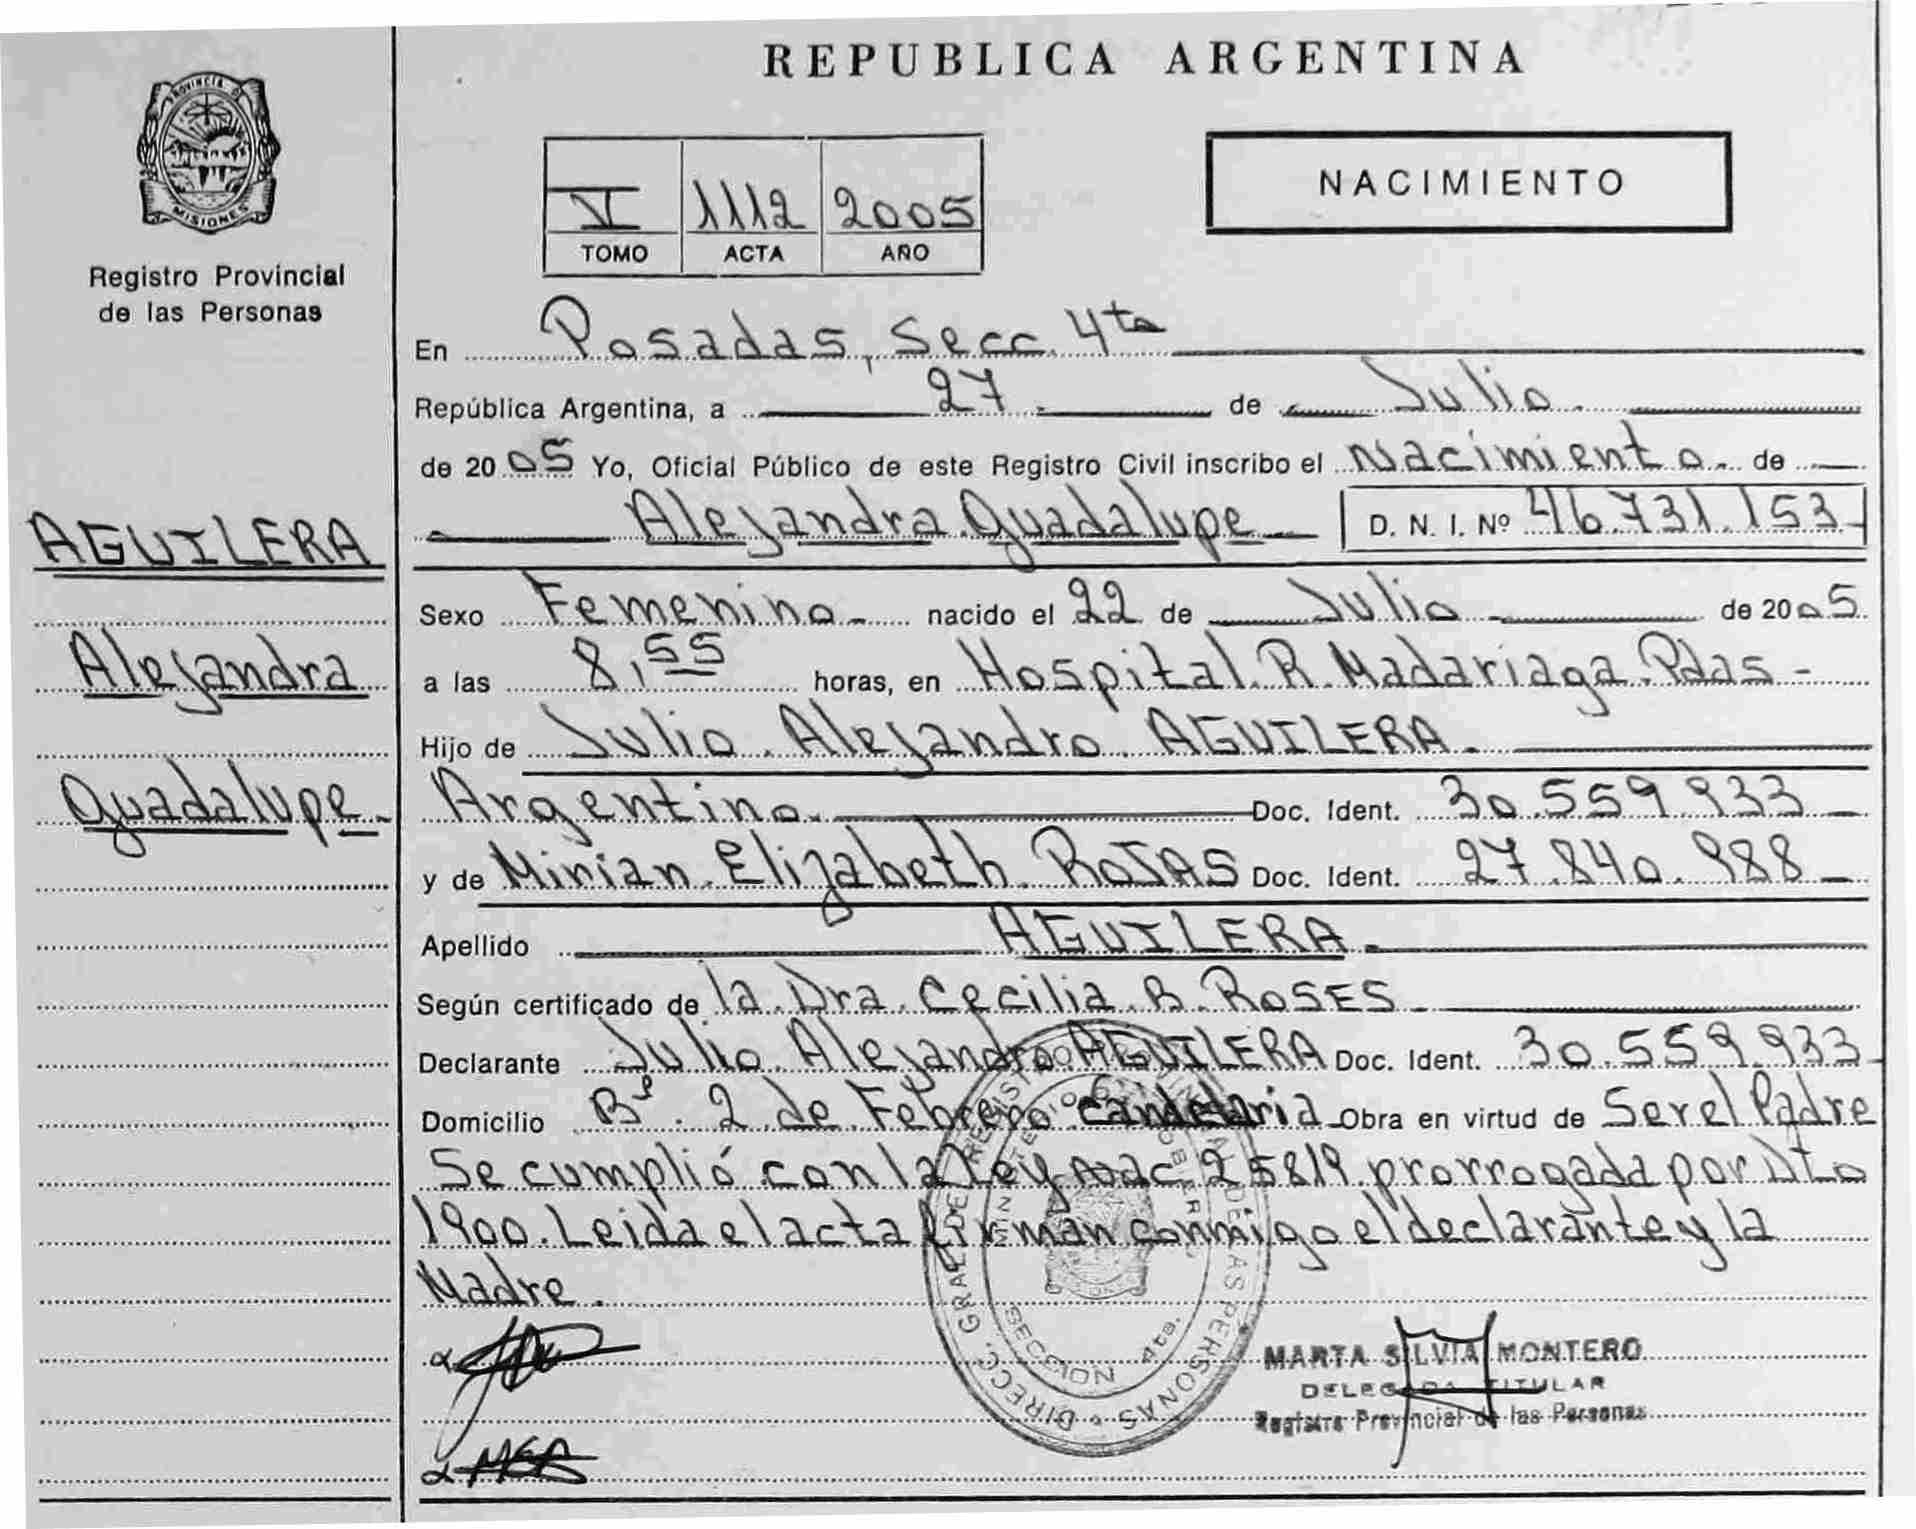 REPUBLICA ARGENTINA
PROVINCIA DE
MISIONES
Registro Provincial
de las Personas
V 1112 2005
TOMO ACTA AÑO
NACIMIENTO
En Posadas, Secc. 4ta
República Argentina, a 27 de Julio
de 2005 Yo, Oficial Público de este Registro Civil inscribo el Nacimiento de
Alejandra Guadalupe D. N. I. Nº 46.731.153
AGUILERA
Alejandra
Guadalupe
Sexo Femenino nacido el 22 de Julio de 2005
a las 8,55 horas, en Hospital R. Madariaga. Pdas
Hijo de Julio Alejandro AGUILERA
Argentino Doc. Ident. 30.559.933
y de Mirian Elizabeth ROJAS Doc. Ident. 27.840.988
Apellido AGUILERA
Según certificado de la Dra. Cecilia B. ROSES
Declarante Julio Alejandro AGUILERA Doc. Ident. 30.559.933
Domicilio Bº 2 de Febrero Candelaria Obra en virtud de Ser el Padre
Se cumplió con la Ley Nac 25819 prorrogada por Dto
1900. Leida el acta firman conmigo el declarante y la
Madre.
DIRECC. GRAL DE REGISTRO PROVINCIAL DE LAS PERSONAS
SECCION 4ta.
MARTA SILVIA MONTERO
DELEGADA TITULAR
Registro Provincial de las Personas
MER